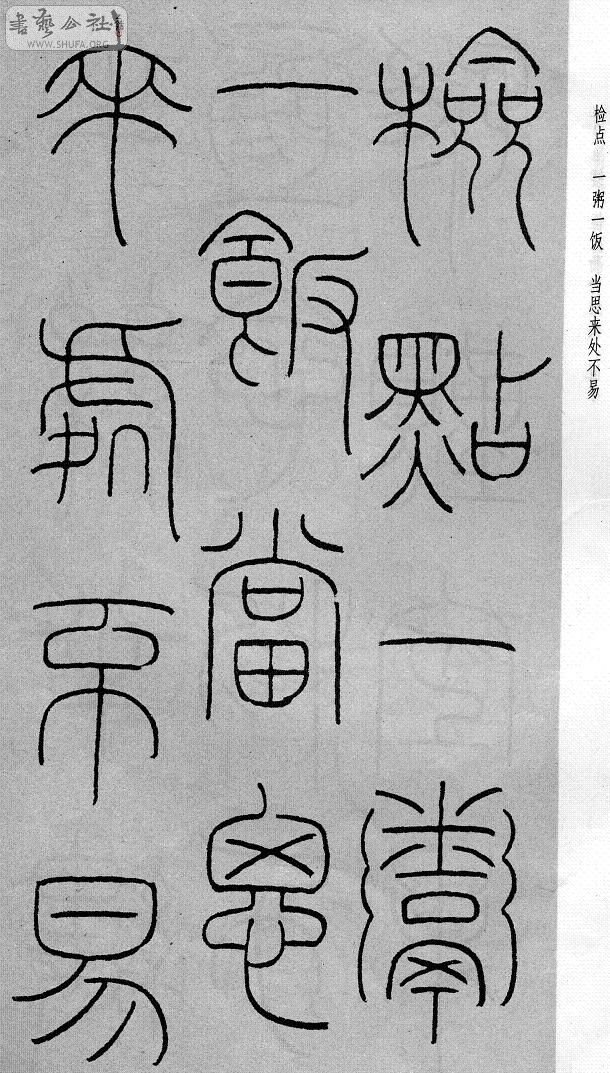 检点 一粥一饭 当思来处不易
檢點一鬻
一飯當思
來處不易
書藝公社
WWW.SHUFA.ORG